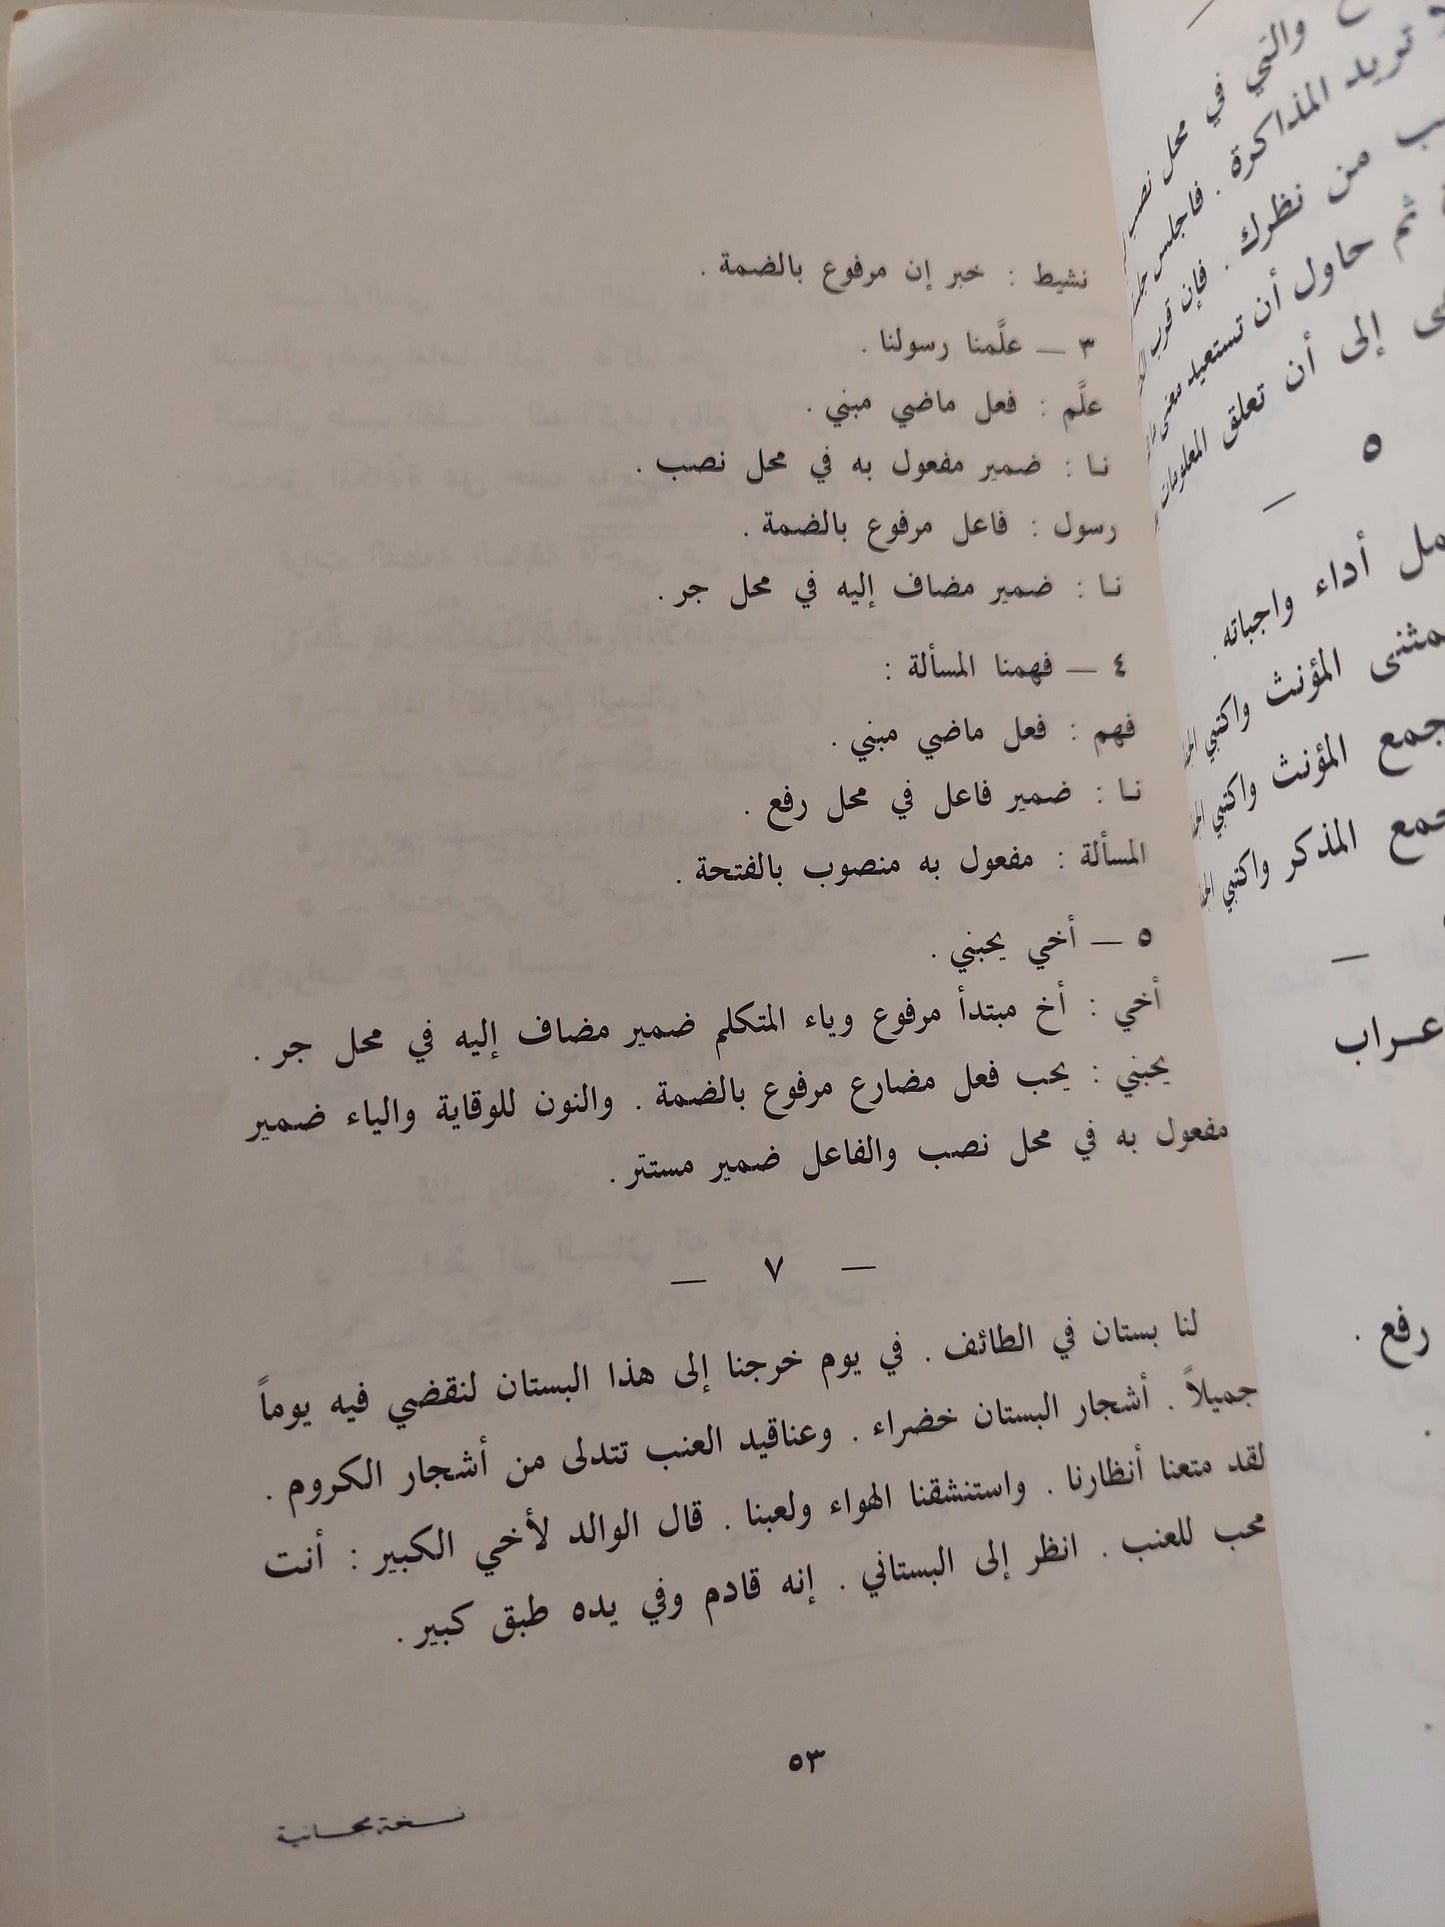 نشيط : خبر إن مرفوع بالضمة .
٣ — علَّمنا رسولنا .
علَّم : فعل ماضي مبني .
نـا : ضمير مفعول به في محل نصب .
رسول : فاعل مرفوع بالضمة .
نـا : ضمير مضاف إليه في محل جر .
٤ — فهمنا المسألة :
فهم : فعل ماضي مبني .
نـا : ضمير فاعل في محل رفع .
المسألة : مفعول به منصوب بالفتحة .
٥ — أخي يحبني .
أخي : أخ مبتدأ مرفوع وياء المتكلم ضمير مضاف إليه في محل جر .
يحبني : يحب فعل مضارع مرفوع بالضمة . والنون للوقاية والياء ضمير
مفعول به في محل نصب والفاعل ضمير مستتر .
— ٧ —
لنا بستان في الطائف . في يوم خرجنا إلى هذا البستان لنقضي فيه يوماً
جميلاً . أشجار البستان خضراء . وعناقيد العنب تتدلى من أشجار الكروم .
لقد متعنا أنظارنا . واستنشقنا الهواء ولعبنا . قال الوالد لأخي الكبير : أنت
محب للعنب . انظر إلى البستاني . إنه قادم وفي يده طبق كبير .
٥٣
نسخة مجانية
والتي في محل نصب
تريد المذاكرة . فاجلس
من نظرك . فإن قرب
ثم حاول أن تستعيد معنى
إلى أن تعلق المعلومات
٥ —
أداء واجباته .
المؤنث واكتبي
المؤنث واكتبي
المذكر واكتبي
—
رفع .